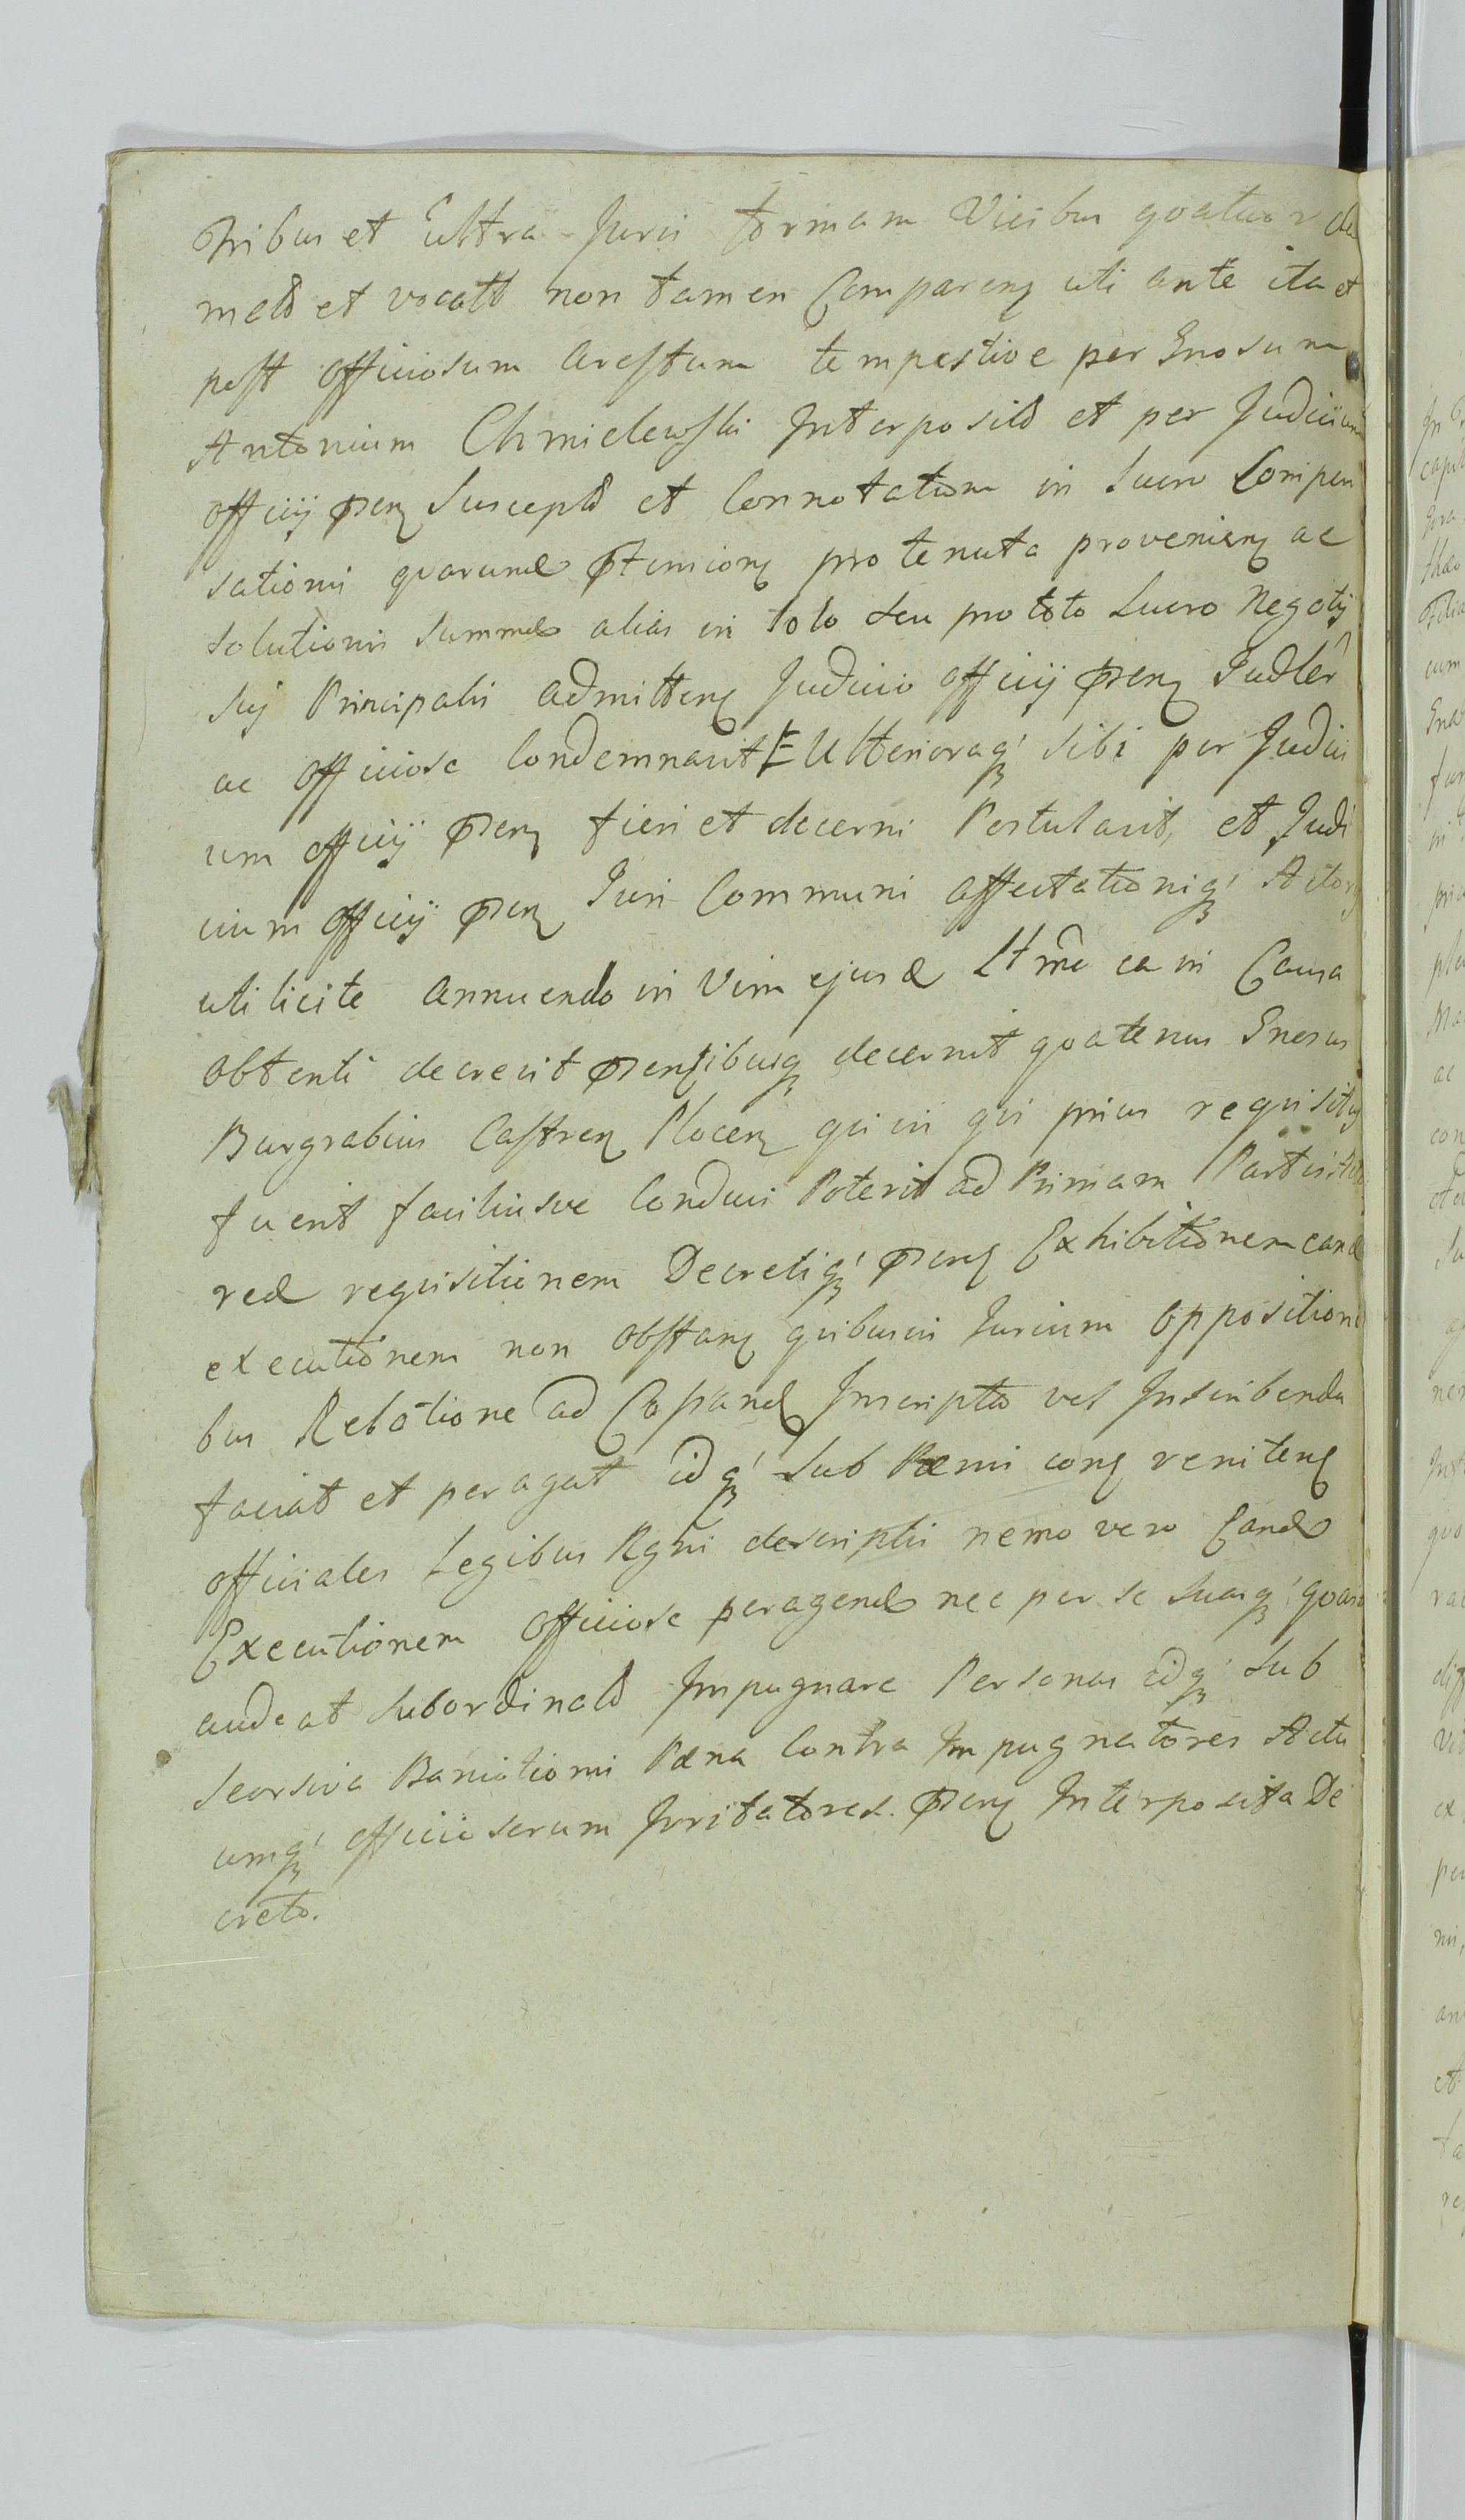 Tribus et Ultra Juris formam Vicibus qvatuor cla
matt et vocatt non tamen Comparenz uti ante ita et
post officiosum Arestum tempestive per Gnosum
Antonium Chmielewski Interpositt et per Judicium
officij pÿenz Susceptt et Connotatum in Lucro Compen
sationis qvarumd pteņsionz pro tenuta provenienz ac
solutionis Summae alias in Solo seu pro toto Lucro Negotij
Sui Principalis admittenz Judicio officij pÿenz Judlr
ac officiose Condemnavit Ulterioraq sibi per Judici
um officij pÿenz fieri et decerni Postulavit, et Judi
cium officij pÿenz Juri Communi affectationiq Actorz
uti licite Annuendo in Vim ejusd Lttmo ea in Causa
Obtenti decrevit pÿentibusq decernit qvatenus Gnosus
Burgrabius Castrenz Plocenz qvivis qvi prius requisitus
fuerit faciliusve Conduci Poterit ad Primam Partis
red requisitionem Decretiq pÿenz Exhibitionem eand
executionem non obstanz qvibusvis Jurium oppositioni
bus Relatione ad Copiand Inscripta vel Inscribenda
faciat et peragat idq Sub Paenis conz renitenz
officiales Legibus Rgni descriptis nemo vero Eand
Executionem officiose peragend nec per se Suasq qvasvis
audeat Subordinatt Impugnare Personas idq Sub
Seorsiva Banitionis Paena Contra Impugnatores Actu
umq officiosorum Irritatores. pÿenz Interposita De
creto.